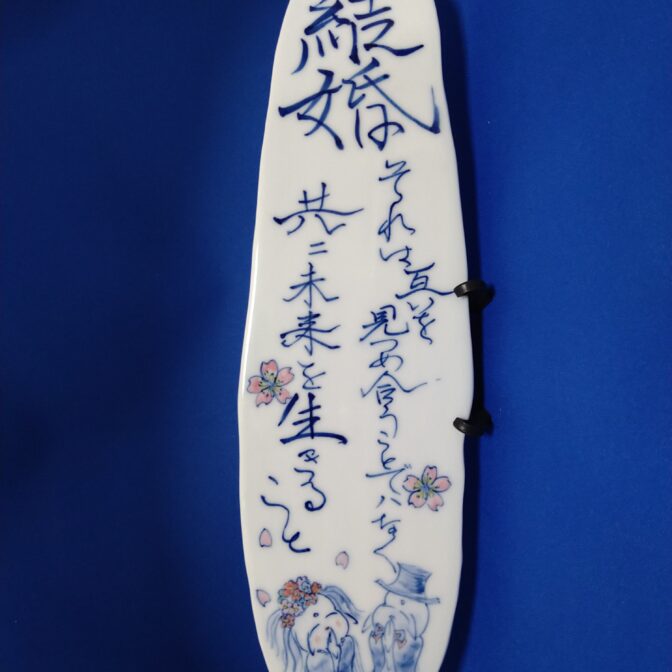 結婚
それは互いを
見つめ合うことでハなく
共ニ未来を生きること